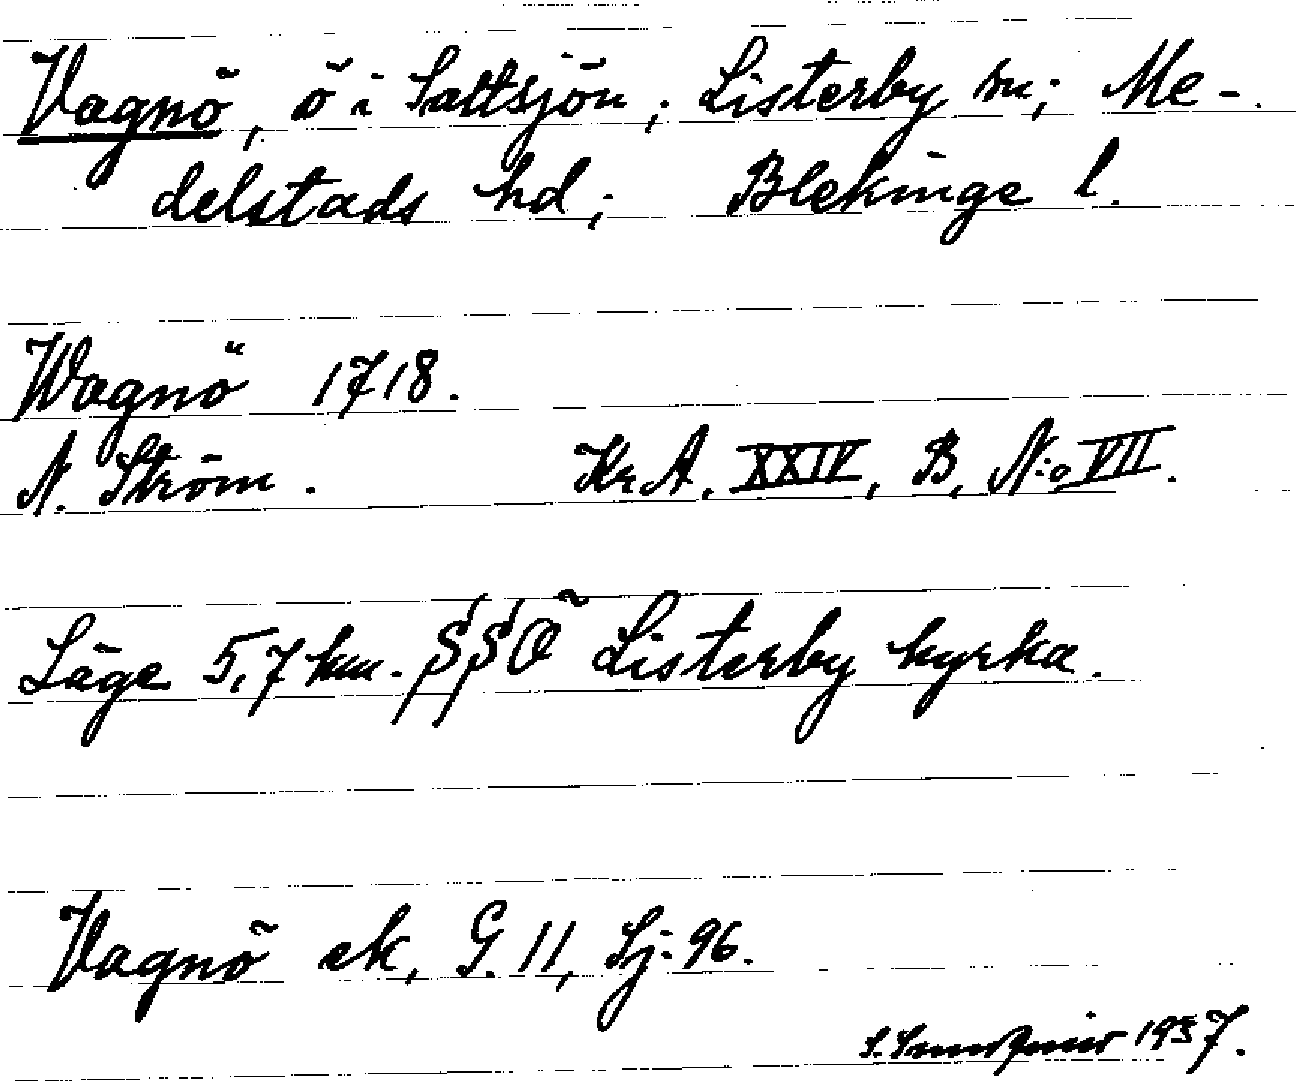 Vagnö, ö i Saltsjön; Listerby sn; Me-
delstads hd; Blekinge l.
Wagnö 1718.
N. Ström. Kr.A. XXIV, B, N:o VII.
Läge 5,7 km. SSÖ Listerby kyrka.
Vagnö ek, G. 11, Sj: 96.
S. 1937.